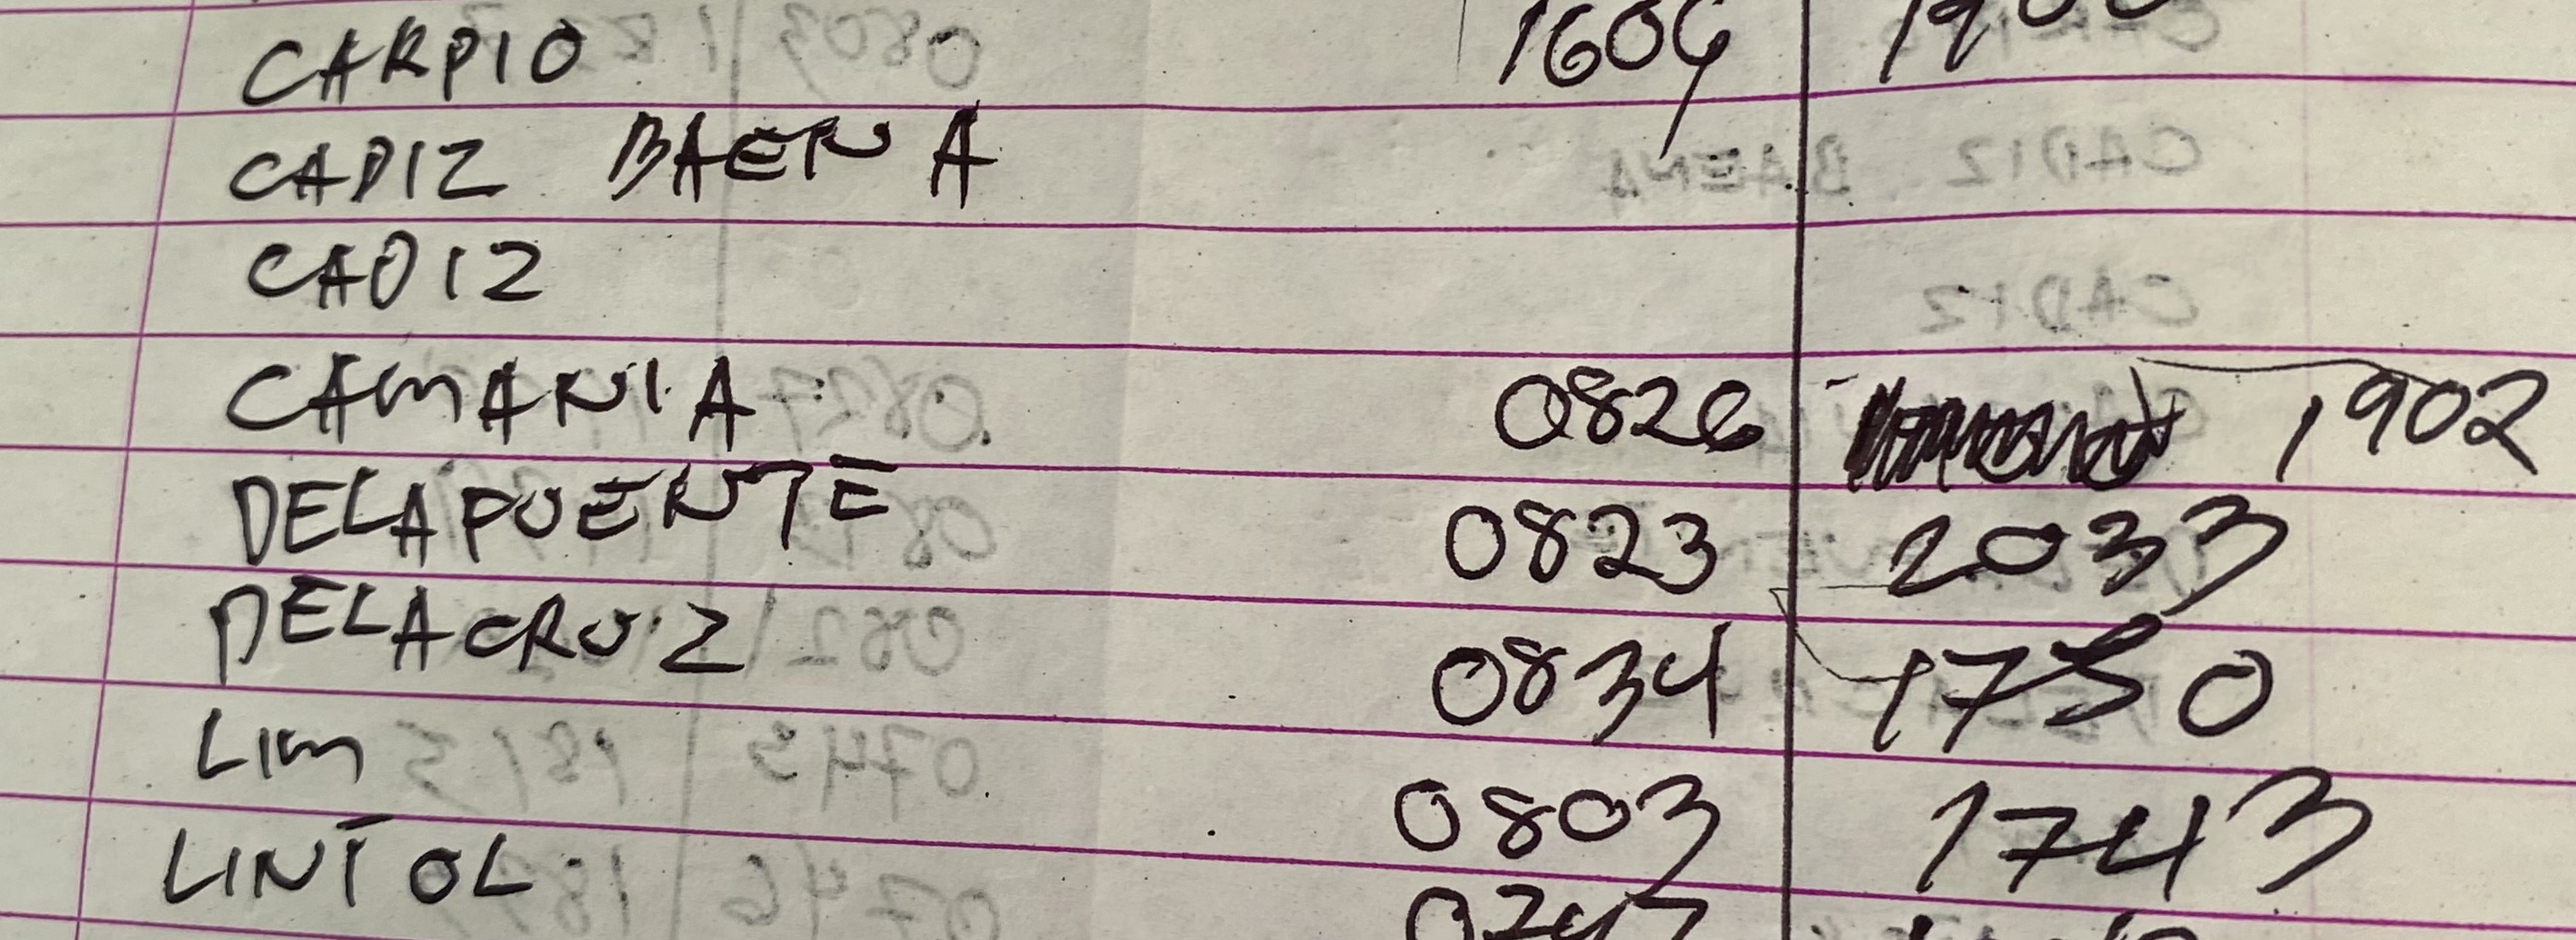 CARPIO 1609
CADIZ BAENA
CADIZ
CAMANIA 0826 1902
DELAPUENTE 0823 2033
DELACRUZ 0834 1750
LIM 0803 1743
LINTOL